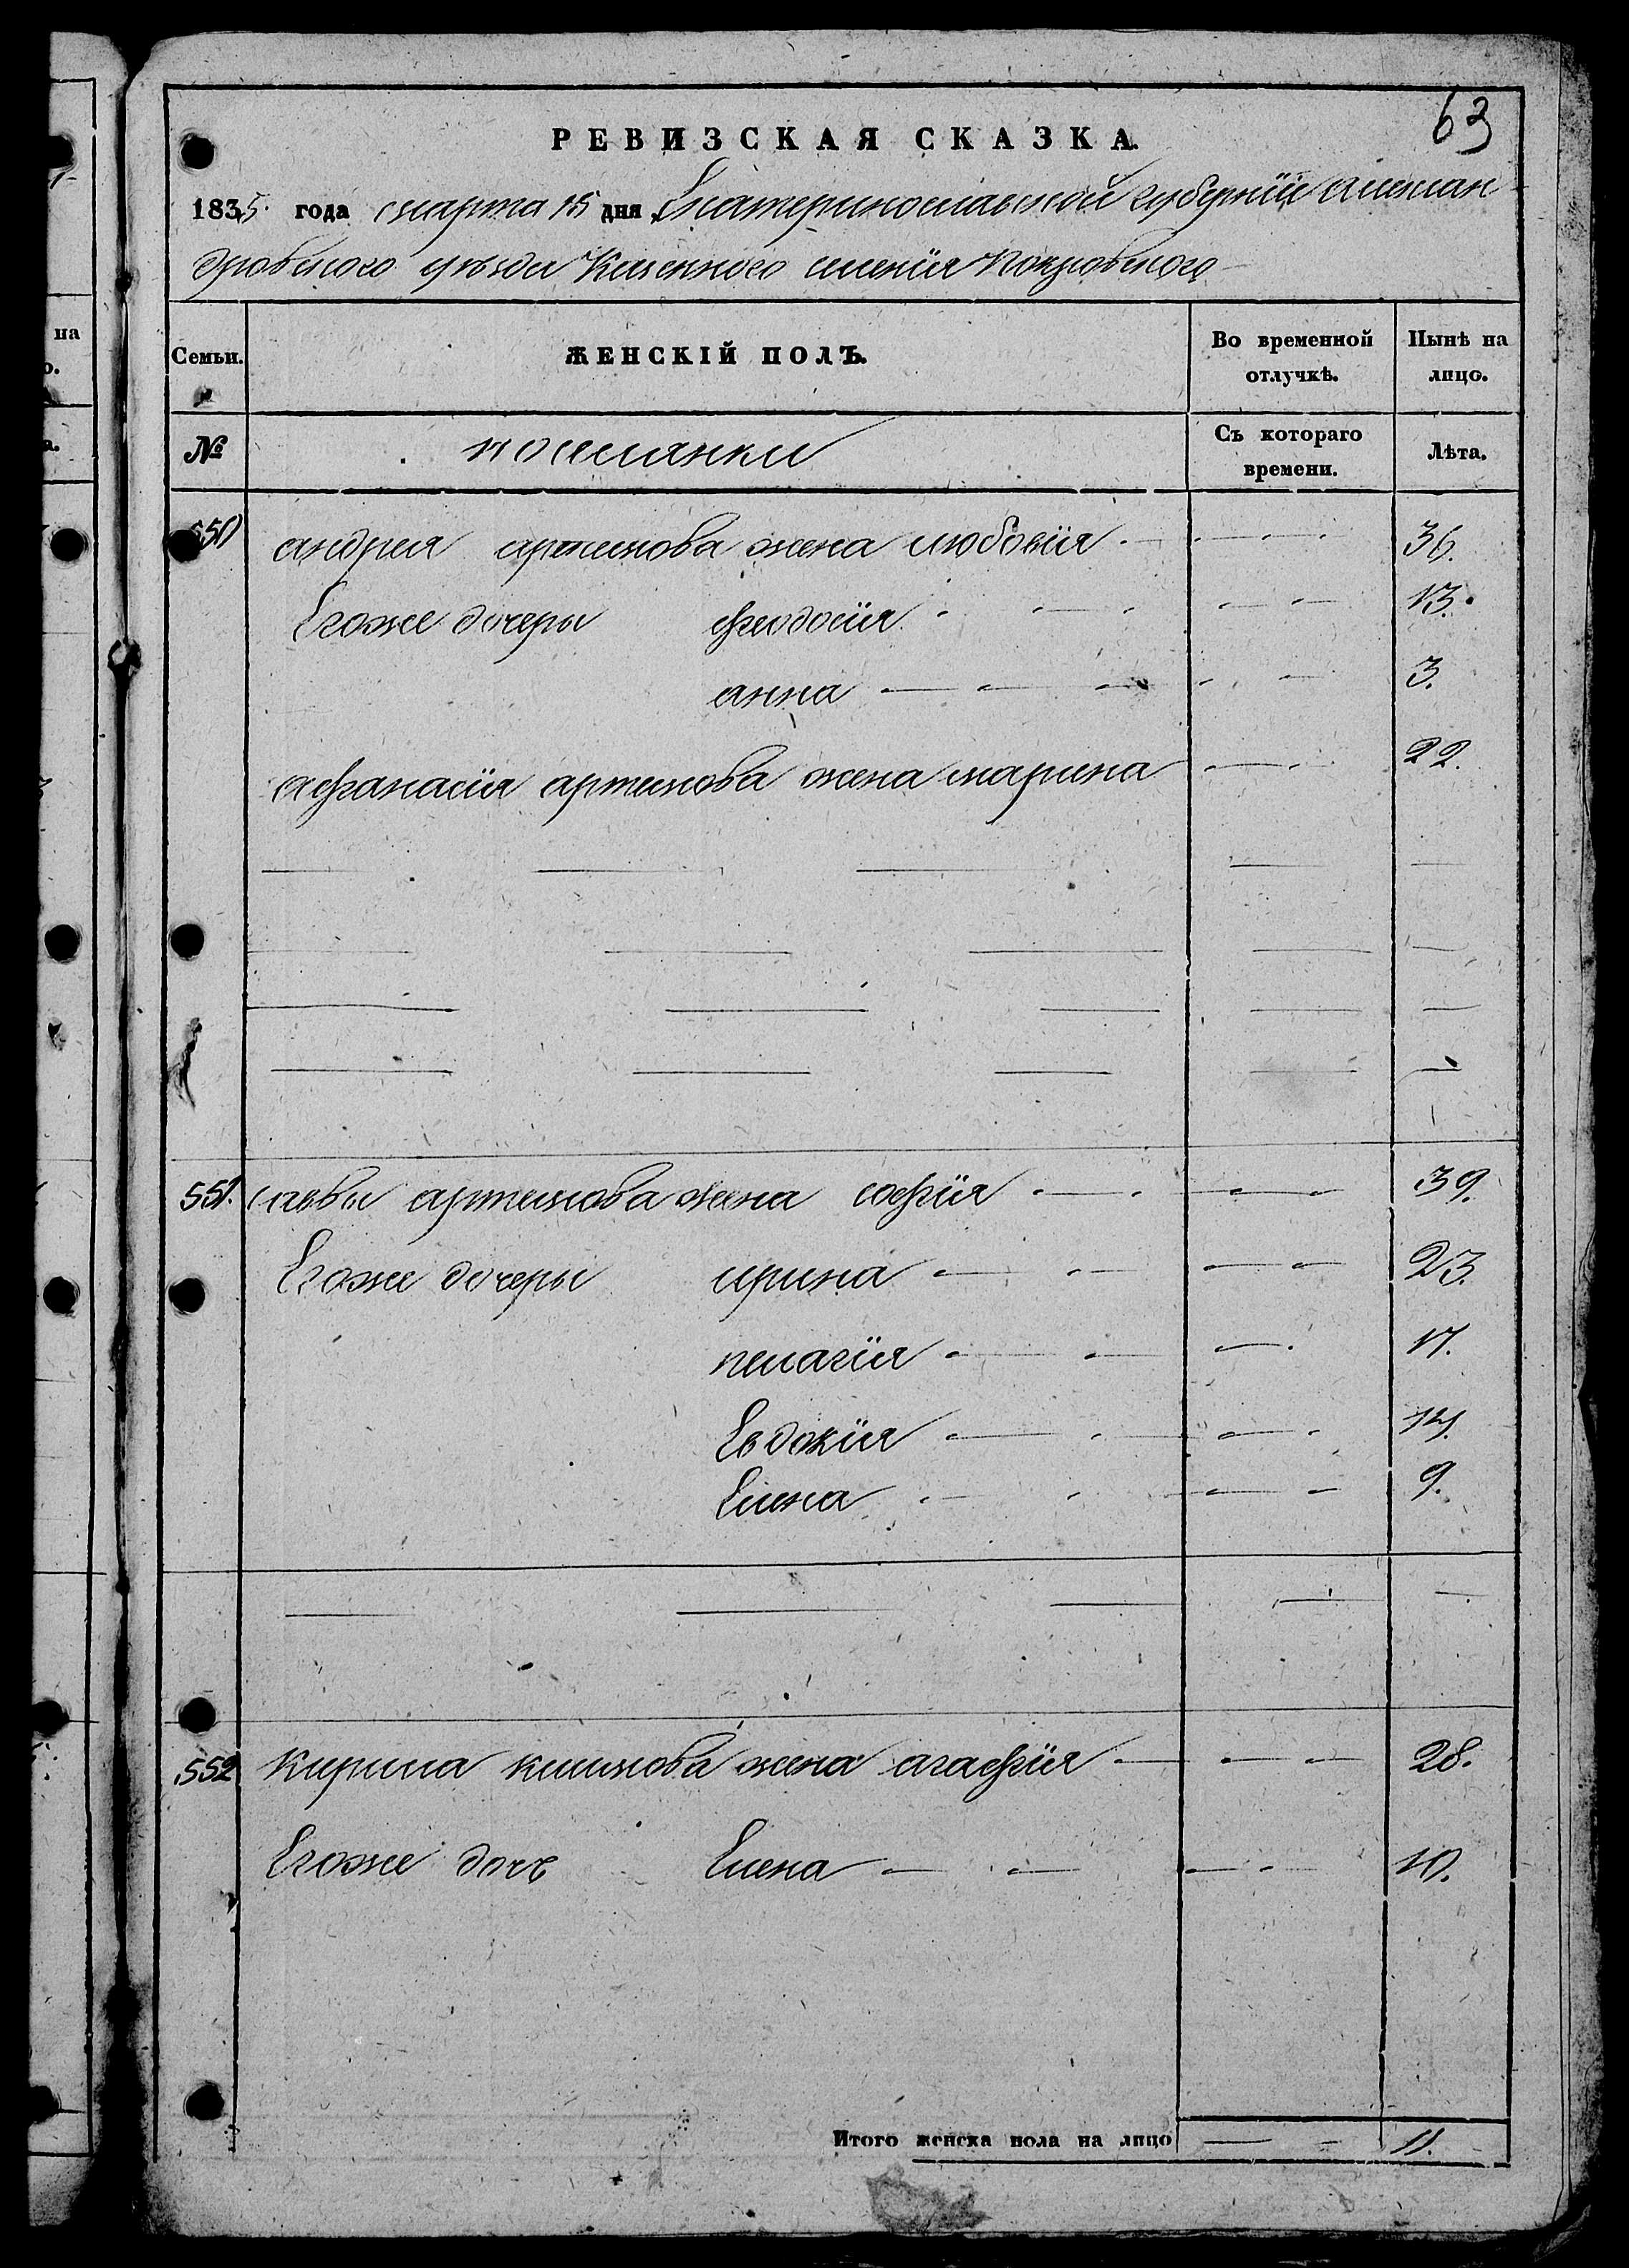 63
РЕВИЗСКАЯ СКАЗКА.
1835. года марта 15 дня Екатеринославской губернїи Алексан
дровского уезда Казенного имения Покровского
Семьи. ЖЕНСКІЙ ПОЛЪ. Во временной отлучкѣ. Нынѣ на лицо.
№ поселянки Съ котораго времени. Лѣта.
550 андрея артемова жена любовїя 36.
Егоже дочеры феодосїя 13.
анна 3.
афанасїя артемова жена марина 22.
551. савы артемова жена софїя 39.
Егоже дочеры ирина 23.
пелагїя 17.
Евдокїя 14.
Елена 9.
552 кирила климова жена агафїя 28.
Егоже дочь Елена 10.
Итого женска пола на лицо 11.